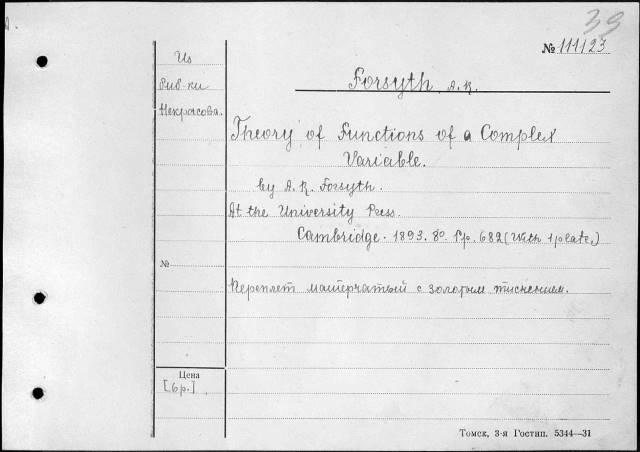 39
№ 111123
Из
биб-ки
Некрасова.
Forsyth, A.R.
Theory of Functions of a Complex
Variable.
by A.R. Forsyth.
At the University Press.
Cambridge. 1893. 8º. Pp. 682 (With 1 plate.)
№
Переплет матерчатый с золотым тиснением.
Цена
[6р.]
Томск, 3-я Гостип. 5344—31